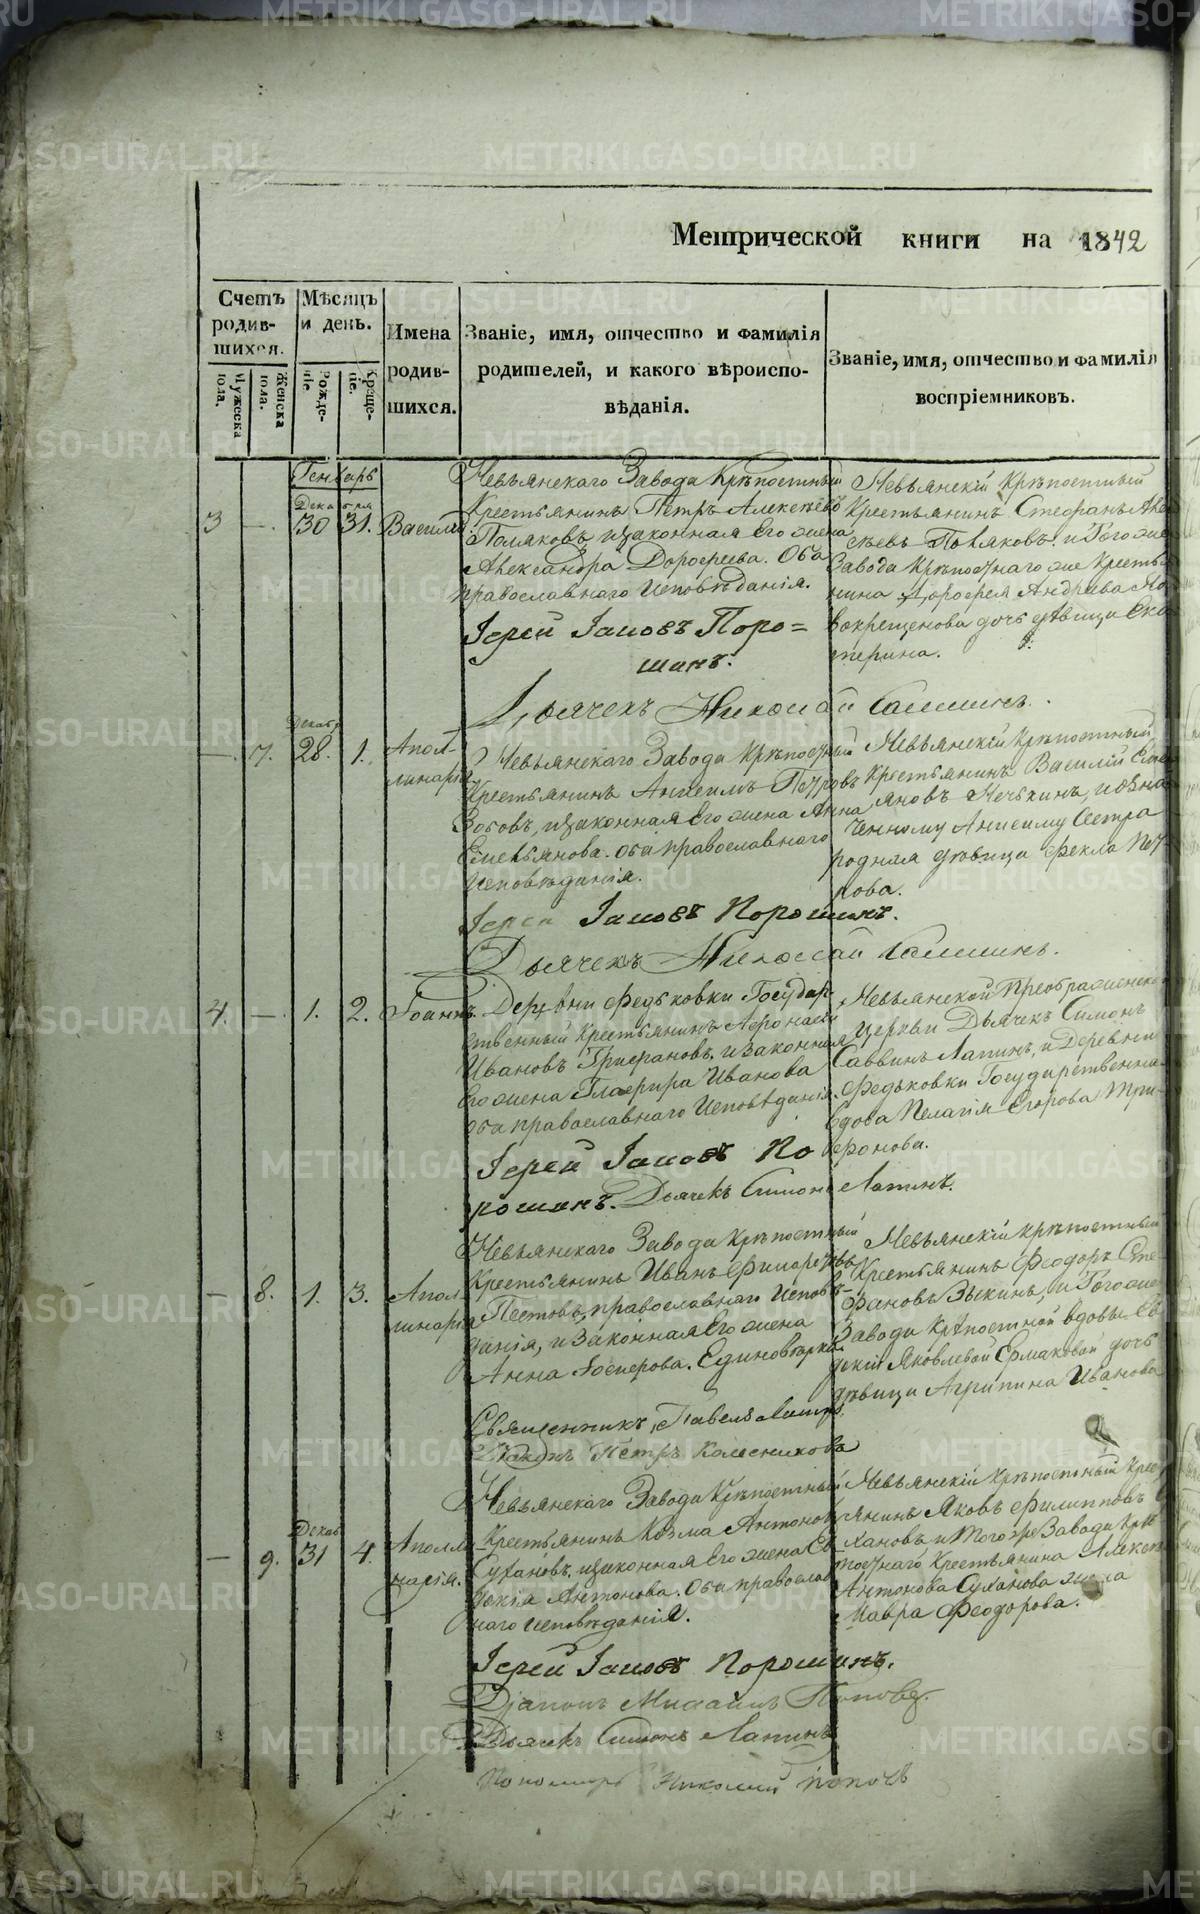 Метрической книги на 1842
Счетъ родив-
шихся.
Мужеска пола.
Женска пола.
Мѣсяцъ и день.
Рожде-
ніе.
Креще-
ніе.
Имена родив-
шихся.
Званіе, имя, отчество и фамилія
родителей, и какого вѣроиспо-
вѣданія.
Званіе, имя, отчество и фамилія
воспріемниковъ.
Генварь
Декабря
3 — 30 31. Василій
Невьянскаго Завода Крѣпостный
Крестьянинъ Петръ Алексѣевъ
Поляковъ, и законная Его жена
Александра Дорофеева. Оба
православнаго исповѣданія.
Іерей Іаковъ Поро=
шинъ.
Дьячекъ Николай
Невьянскій Крѣпостный
Крестьянинъ Стефанъ Алек
сѣевъ Поляковъ, и Того же
Завода Крѣпостнаго же Крестья
нина Дорофея Андреева Но
вокрещенова дочь дѣвица Ека
терина.
Декабр
— 7. 28. 1. Апол-
линарія
Невьянскаго Завода Крѣпостный
Крестьянинъ Анисимъ Петровъ
Зотовъ, и законная Его жена Анна
Емельянова. оба православнаго
исповѣданія.
Іерей Іаковъ Порошинъ.
Дьячекъ Николай
Невьянскій Крѣпостный
Крестьянинъ Василій Емель
яновъ и озна
ченному Анисиму Сестра
родная дѣвица Фекла Пет-
рова.
4. — 1. 2. Іоаннъ.
Деревни Федьковки Государ-
ственный Крестьянинъ Афонасей
Ивановъ Трифановъ, и законная
Его жена Глафира Иванова
оба православнаго исповѣданія.
Іерей Іаковъ По
рошинъ. Дьячекъ Симонъ Лапинъ.
Невьянской Преображенской
Церкви Дьячекъ Симонъ
Саввинъ Лапинъ, и Деревни
Федьковки Государственная
вдова Пелагія Егорова Три-
фонова.
— 8. 1. 3. Апол
линарія
Невьянскаго Завода Крѣпостный
Крестьянинъ Иванъ
Пестовъ, православнаго исповѣ-
данія, и законная Его жена
Анна Единовѣрка.
Священникъ Павелъ
Дьяконъ Петръ Колесниковъ
Невьянскій крѣпостный
Крестьянинъ Феодоръ Сте
фановъ Зыкинъ, и Того же
Завода Крѣпостной вдовы Ев
докіи Яковлевой Ермаковой дочь
дѣвица Агрипина Иванова
Декаб
— 9. 31 4. Аполли
нарія.
Невьянскаго Завода Крѣпостный
Крестьянинъ Козма Антоновъ
Сухановъ, и законная Его жена Ев
докія Антонова. Оба православ
наго исповѣданія.
Іерей Іаковъ Порошинъ.
Діаконъ Михаилъ Поповъ.
Дьячекъ Симонъ Лапинъ
Пономарь Николай Поповъ
Невьянскій Крѣпостный Крес
тьянинъ Яковъ Филипповъ Су
хановъ и того же Завода Крѣ
постнаго Крестьянина Алексея
Антонова Суханова жена
Мавра Феодорова.
METRIKI.GASO-URAL.RU